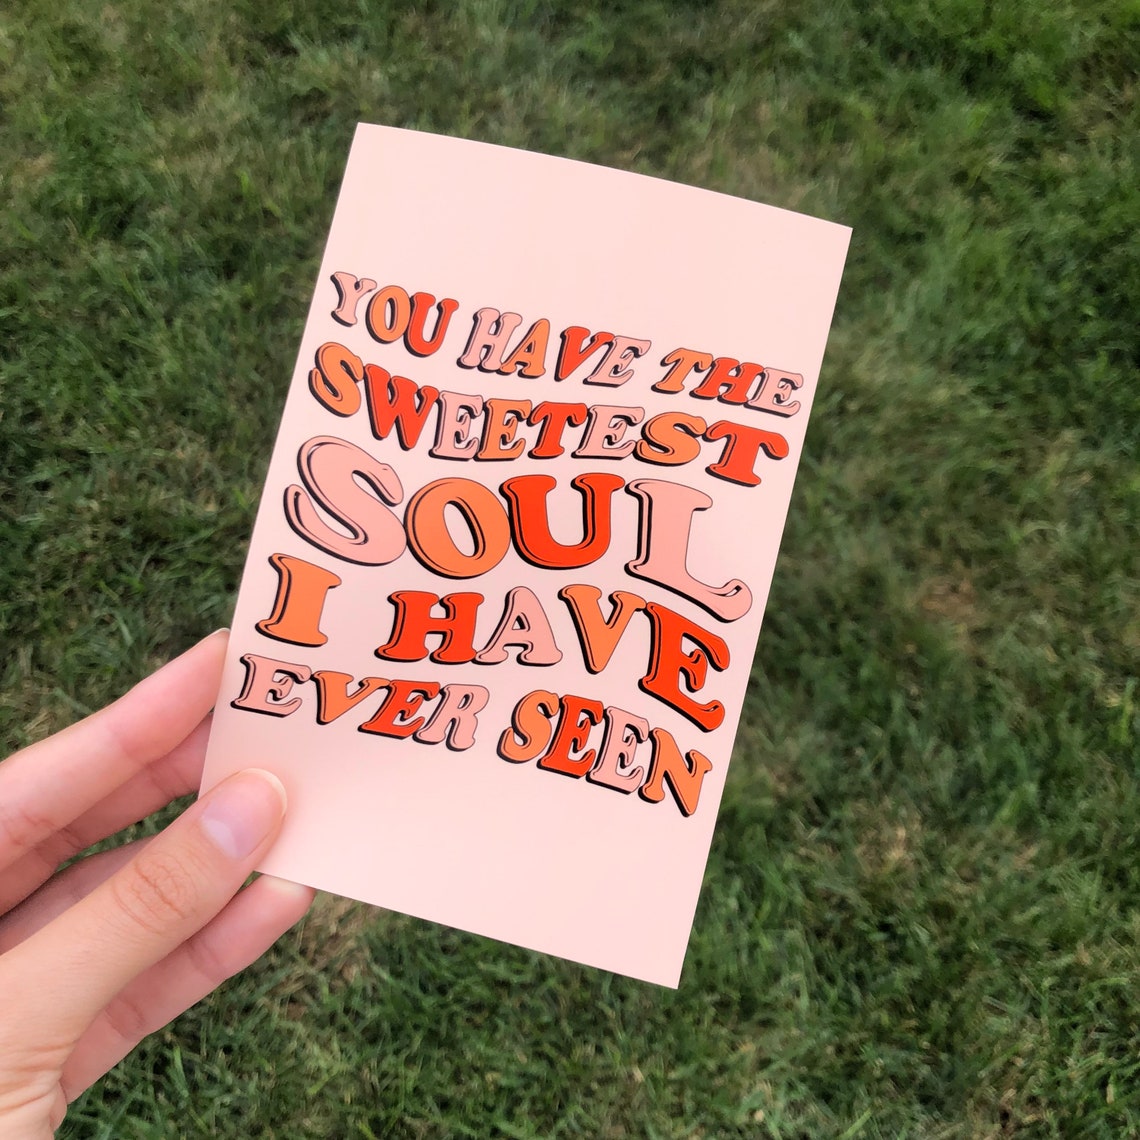 YOU HAVE THE
SWEETEST
SOUL
I HAVE
EVER SEEN